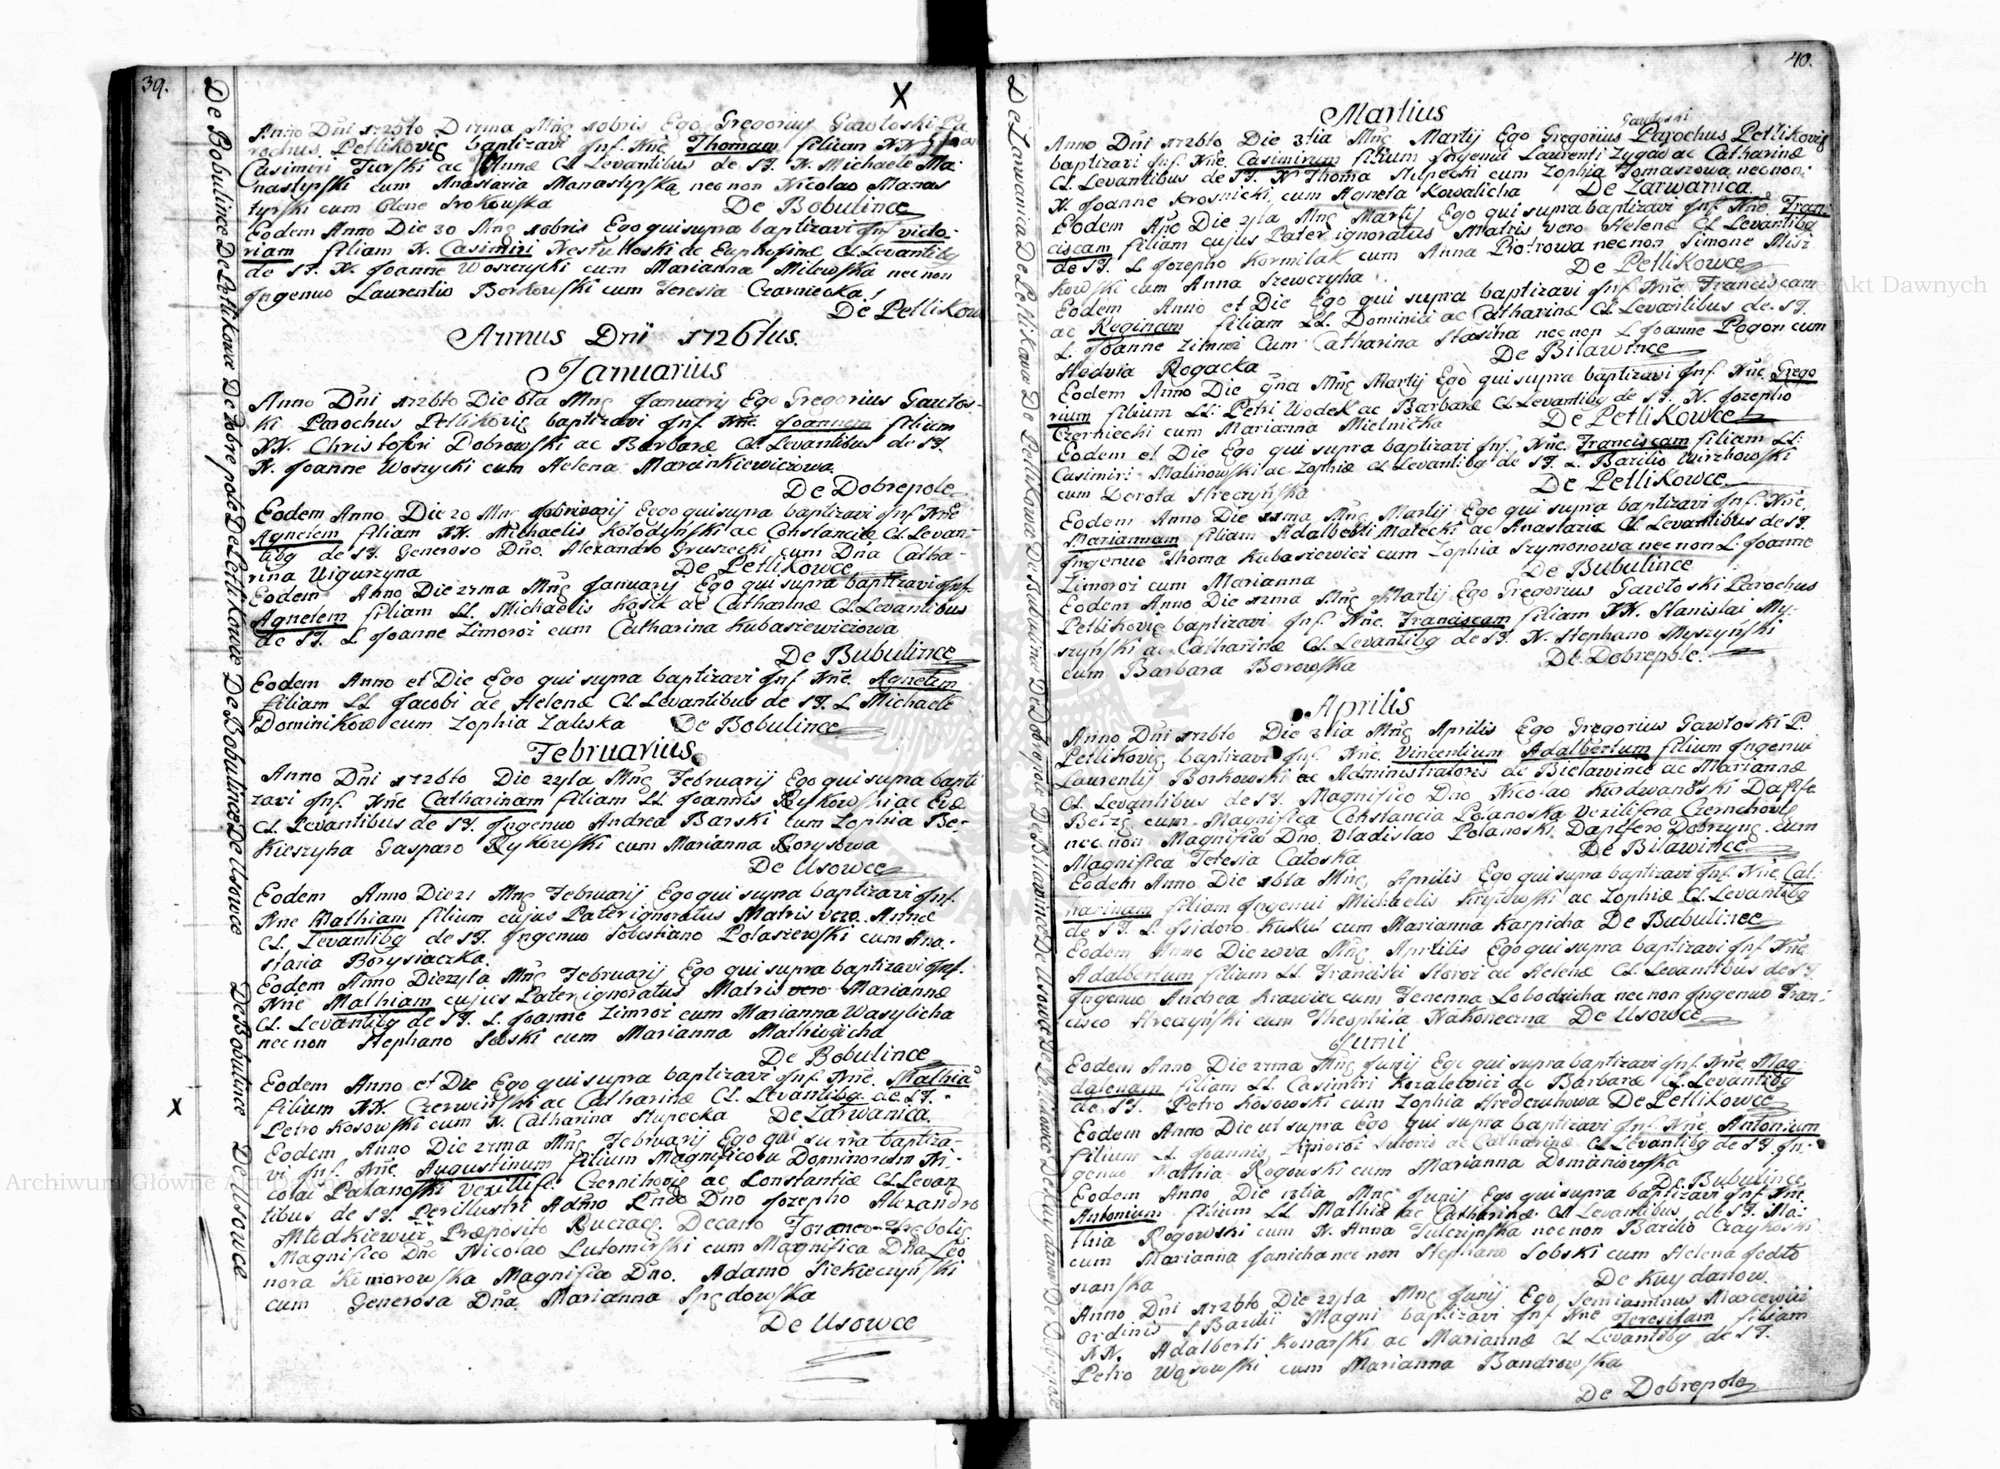 39.
X
De Bobulince De Petlikowce De Dobrepole De Petlikowce De Bobulince De Usowce De Bobulince De Usowce
Anno Dni 1725to D 17ma Mng 10bris Ego Gregoriuz Gawłoski Pa
rochus Petlikovig baptizavi Jnf. Nne. Thomam filium NN
Casimiri Turski ac Annæ Cl. Levantibus de S.F. N. Michaele Ma-
nastyrski cum Anastazia Manastyrska necnon Nicolao Manas
tyrski cum Srokowska De Bobulince
Eodem Anno Die 30 Mng 10bris Ego qui supra baptizavi Jnf. victo-
riam filiam N. Casimiri ac Euphosinæ Cl. Levantibg
de S.F. N. Joanne Woszczycki cum Marianna Milewska necnon
Jngenuo Laurentio Borkowski cum Teresia Czarniecka
De Petlikow
Annus Dni 1726tus.
Januarius
Anno Dni 1726to Die 6ta Mng Januarij Ego Gregorius Gawłos-
ki Parochus Petlikovig baptizavi Jnf. Nne. Joannem filium
NN. Christofori Dobrowski ac Barbaræ Cl. Levantibus de S.F.
N. Joanne Woszycki cum Helena Marcinkiewiczowa
De Dobrepole
Eodem Anno Die 20 Mng Ego qui supra baptizavi Jnf. Nne
Agnetem filiam NN. Michaelis Kołodyński ac Constanciæ Cl. Levan-
tibg de S.F. Generoso Dno. Alexandro Gruszecki cum Dna Catha-
rina Uigurzyna De Petlikowce
Eodem Anno Die 27ma Mng Januarij Ego qui supra baptizavi Jnf.
Agnetem filiam LL. Michaelis Kosik ac Catharinæ Cl. Levantibus
de S.F. L. Joanne Zimoroz cum Catharina Kubasiewiczowa
De Bubulince
Eodem Anno et Die Ego qui supra baptizavi Jnf. Nne. Agnetem
filiam LL Jacobi ac Helenæ Cl. Levantibus de S.F. L Michaele
Dominikow cum Zophia Zaleska De Bobulince
Februarius
Anno Dni 1726to Die 22da Mng Februarij Ego qui supra bapti
zavi Jnf. Nne Catharinam filiam LL Joannis Rykowski ac Evæ
Cl. Levantibus de S.F. Jngenuo Andrea Barski cum Zophia Be-
Kieszyha Gasparo Rykowski cum Marianna Borysowa
De Usowce
Eodem Anno Die 21 Mng Februarij Ego qui supra baptizavi Jnf.
Nne Mathiam filium cujus Pater ignoratus Matris vero Annæ
Cl. Levantibg de S.F. Jngenuo Sebestiano Polaszewski cum Ana-
stazia Borysiaczka.
Eodem Anno Die Mng Februarij Ego qui supra baptizavi Jnf.
Nne Mathiam cujus Pater ignoratus Matris vero Mariannæ
Cl. Levantibg de S.F. L. Joanne Zimroz cum Marianna Wasylicha
necnon Stephano Sobski cum Marianna Mathiwiicha
De Bobulince
Eodem Anno et Die Ego qui supra baptizavi Jnf. Nne. Mathia
filium NN. Czerwinski ac Catharinæ Cl. Levantibg de S.F.
X
Petro Kosowski cum N. Catharina Stupecka De Zarwanica.
Eodem Anno Die 27ma Mng Februarij Ego qui supra baptiza-
vi Jnf. Nne. Augustinum filium Magnificoru Dominorum Ni-
colai Polanoski Vexillife. Czernihovie ac Constantiæ Cl. Levan
tibus de S.F. Perillustri Admo Rndo Dno Josepho Alexandro
Præposito Decano
Magnifico Dno Nicolao Lutomirski cum Magnifica Dna Leo
nora Komorowska Magnifico Dno. Adamo Siekierzyński
cum Generosa Dna Marianna Spędowska
De Usowce
40.
De Zarwanica De Petlikowce De Petlikowce De Bubulince De Dobrepole De Bilawince De Bubulince De Usowce De Petlikowce De Bubulince De Kuydanow De Dobrepole
Martius
Gawłoski
Anno Dni 1726to Die 3tia Mng Martij Ego Gregorius Parochus Petlikovig
baptizavi Jnf. Nne. Casimirum filium Jngenui Laurenti Zygad ac Catharinæ
Cl. Levantibus de S.F. N. Thoma Stupecki cum Zophia Tomaszowa necnon
N. Joanne Krosnicki cum Agneta Kowalicha De Zarwanica.
Eodem Ano Die Mng Martij Ego qui supra baptizavi Jnf. Nne. Fran-
ciscam filiam cujus Pater ignoratus Matris vero Helenæ Cl. Levantibg
de S.F. L Jozepho Kormilak cum Anna Piotrowa necnon Simone Misz
kowski cum Anna Szewczyha De Petlikowce
Eodem Anno et Die Ego qui supra baptizavi Jnf. Nne. Franciscam
ac Reginam filiam LL. Dominici ac Catharinæ Cl. Levantibus de S.F.
L. Joanne Zimroz Cum Catharina Stasina necnon L Joanne Pogon cum
Hedvia Rogacka De Bilawince
Eodem Anno Die 9na Mng Martij Ego qui supra baptizavi Jnf. Nne. Grego
rium filium LL. Petri Wodek ac Barbaræ Cl. Levantibg de S.F. N. Jozepho
Czerniecki cum Marianna Mielniczka De Petlikowce
Eodem et Die Ego qui supra baptizavi Jnf. Nne. Franciscam filiam LL.
Casimiri Malinowski ac Zophiæ Cl. Levantibg de S.F. L. Bazilio Wirzbowski
cum Dorota Streczyńska De Petlikowce.
Eodem Anno Die 11ma Mng Martij Ego qui supra baptizavi Jnf. Nne.
Mariannam filiam Adalberti Małecki ac Anastaziæ Cl. Levantibus de S.F.
Jngenuo Thoma Kubasiewicz cum Zophia Szymonowa necnon L. Joanne
Zimoroz cum Marianna De Bubulince
Eodem Anno Die 12ma Mng Martij Ego Gregorius Gawłoski Parochus
Petlikovig baptizavi Jnf. Nne. Franciscam filiam NN. Stanislai My-
szyński ac Catharinæ Cl. Levantibg de S.F. N. Stephano Myszyński
cum Barbara Borowska De Dobrepole.
Aprilis
Anno Dni 1726to Die 3tia Mng Aprilis Ego Gregorius Gawłoski P.
Petlikovig baptizavi Jnf. Nne. Vincentium Adalbertum filium Jngenui
Laurentij Borkowski ac Administratoris de Bielawince ac Mariannæ
Cl. Levantibus de S.F. Magnifico Dno Nicolao Kurdwanoski Dapife
Betzg cum Magnifica Constancia Polanoska Vexilifera Czernehovg
necnon Magnifico Dno. Vladislao Polanoski Dapifero Dobrzyng cum
Magnifica Teresia Catoska De Bilawince
Eodem Anno Die 16ta Mng Aprilis Ego qui supra baptizavi Jnf. Nne Cat-
harinam filiam Jngenui Michaelis Krystowski ac Zophiæ Cl. Levantibg
de S.F. L. Isidoro Kuskui cum Marianna Karpicha De Bubulince
Eodem Anno Die Mng Aprilis Ego qui supra baptizavi Jnf. Nne.
Adalbertum filium LL Francisci Storoz ac Helenæ Cl. Levantibus de S.F.
Jngenuo Andrea Krawicc cum Lobodzicha necnon Jngenuo Fran-
cisco Streczyński cum Theophila Nakoneczna De Usowce
Junii
Eodem Anno Die 27ma Mng Junij Ego qui supra baptizavi Jnf. Nne. Mag-
dalenam filiam LL. Casimiri Kozalewicz ac Barbaræ Cl. Levantibg
de S.F. Petro Kosowski cum Zophia Strederuhowa De Petlikowce
Eodem Anno Die ut supra Ego qui supra baptizavi Jnf. Nne. Antonium
filium LL Joannis Zimoroz Sutoris ac Catharinæ Cl. Levantibg de S.F. Jn-
genuo Mathia Rogowski cum Marianna Domaniowska
De Bubulince
Eodem Anno Die 13tia Mng Junij Ego qui supra baptizavi Jnf. Nne.
Antonium filium LL Mathiæ ac Catharinæ Cl. Levantibus de S.F. Ma-
thia Rogowski cum N. Anna Tulczynska necnon Bazilio Czaykoski
cum Marianna Janicha necnon Stephano Sobski cum Helena Fedto
szanska
De Kuydanow.
Anno Dni 1726to Die 22da Mng Junij Ego Marcewicz
Ordinis S. Bazilii Magni baptizavi Jnf Nne Teresiam filiam
NN. Adalberti Konarski ac Mariannæ Cl Levantibg de S.F.
Petro Wąsowski cum Marianna Bandrowska
De Dobrepole
Archiwum Główne Akt Dawnych